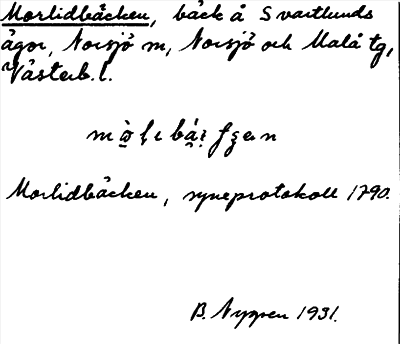 Morlidbäcken, bäck å Svartlunds
ägor, Norsjö m, Norsjö och Malå tg,
Västerb. l.
Morlidbäcken, syneprotokoll 1790.
B. Nygren 1931.